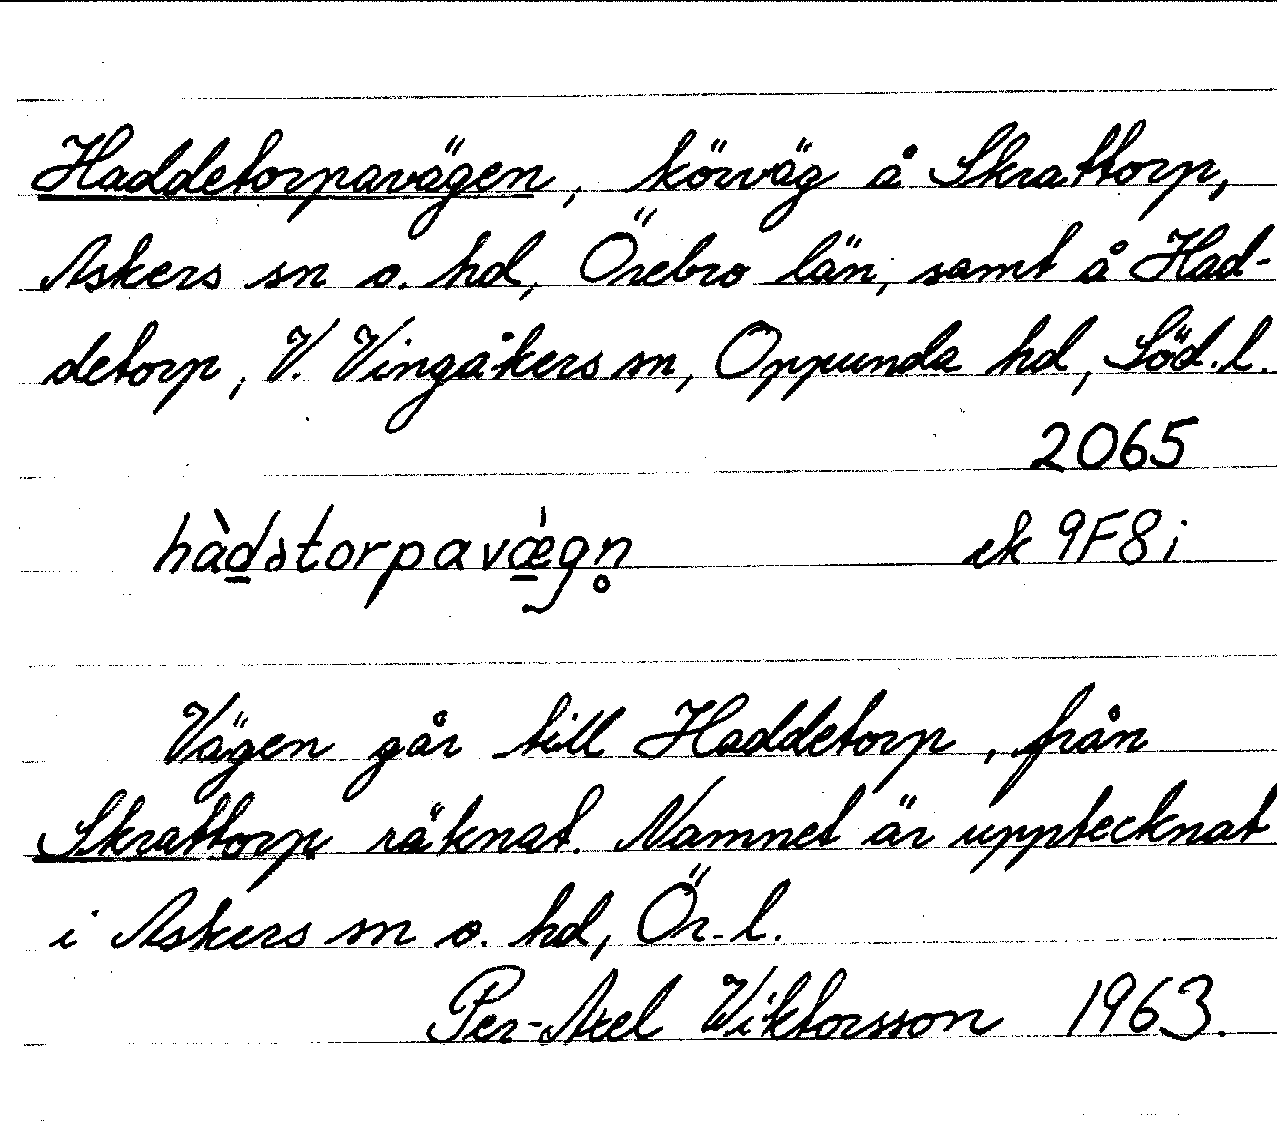 Haddetorpavägen, körväg å Skrattorp,
Askers sn o. hd, Örebro län, samt å Had-
detorp, V. Vingåkers sn, Oppunda hd, Söd. l.
2065
hàd̲ətorpavǽ̲gn̥ ek 9F8i
Vägen går till Haddetorp, från
Skrattorp räknat. Namnet är upptecknat
i Askers sn o. hd, Ör. l.
Per-Axel Wiktorsson 1963.